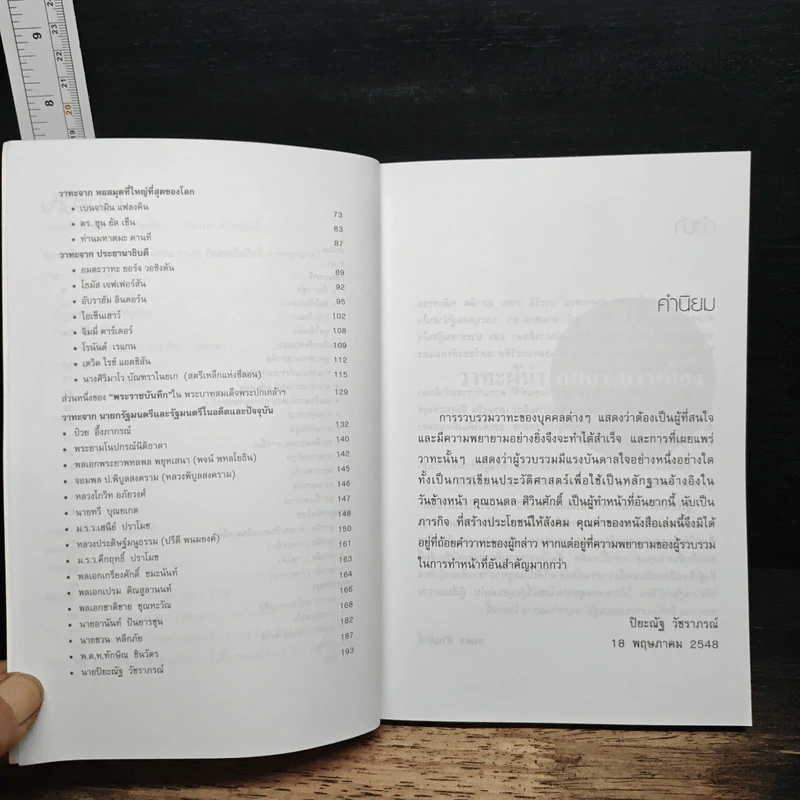 วาทะจาก หอสมุดที่ใหญ่ที่สุดของโลก
• เบนจามิน แฟลงคิน 73
• ดร. ซุน ยัด เซ็น 83
• ท่านมหาตมะ คานที 87
วาทะจาก ประธานาธิบดี
• อมตะวาทะ ยอร์จ วอชิงตัน 89
• โธมัส เจฟเฟอร์สัน 92
• อับราฮัม ลินคอร์น 95
• ไอเซ็นเฮาว์ 102
• จิมมี่ คาร์เตอร์ 108
• โรนันด์ เรแกน 109
• เดวิด ไรซ์ แอตชิสัน 112
• นางศิริมาโว บัณฑราไนยเก (สตรีเหล็กแห่งซีลอน) 115
ส่วนหนึ่งของ "พระราชบันทึก"ใน พระบาทสมเด็จพระปกเกล้าฯ 129
วาทะจาก นายกรัฐมนตรีและรัฐมนตรีในอดีตและปัจจุบัน
• ป๋วย อึ๊งภากรณ์ 132
• พระยามโนปกรณ์นิติธาดา 140
• พลเอกพระยาพหลพล พยุหเสนา (พจน์ พหลโยธิน) 142
• จอมพล ป.พิบูลสงคราม (หลวงพิบูลสงคราม) 144
• หลวงโกวิท อภัยวงศ์ 145
• นายทวี บุณยเกต 147
• ม.ร.ว.เสนีย์ ปราโมช 148
• หลวงประดิษฐ์มนูธรรม (ปรีดี พนมยงค์) 150
• ม.ร.ว.คึกฤทธิ์ ปราโมช 161
• พลเอกเกรียงศักดิ์ ชมะนันท์ 163
• พลเอกเปรม ติณสูลานนท์ 164
• พลเอกชาติชาย ชุณหะวัณ 166
• นายอานันท์ ปันยารชุน 168
• นายชวน หลีกภัย 182
• พ.ต.ท.ทักษิณ ชินวัตร 187
• นายปิยะณัฐ วัชราภรณ์ 193
คำนิยม
การรวบรวมวาทะของบุคคลต่างๆ แสดงว่าต้องเป็นผู้ที่สนใจ
และมีความพยายามอย่างยิ่งจึงจะทำได้สำเร็จ และการที่เผยแพร่
วาทะนั้นๆ แสดงว่าผู้รวบรวมมีแรงบันดาลใจอย่างหนึ่งอย่างใด
ทั้งเป็นการเขียนประวัติศาสตร์เพื่อใช้เป็นหลักฐานอ้างอิงใน
วันข้างหน้า คุณธนดล ศิวินศักดิ์ เป็นผู้ทำหน้าที่อันยากนี้ นับเป็น
ภารกิจ ที่สร้างประโยชน์ให้สังคม คุณค่าของหนังสือเล่มนี้จึงมิได้
อยู่ที่ถ้อยคำวาทะของผู้กล่าว หากแต่อยู่ที่ความพยายามของผู้รวบรวม
ในการทำหน้าที่อันสำคัญมากกว่า
ปิยะณัฐ วัชราภรณ์
18 พฤษภาคม 2548